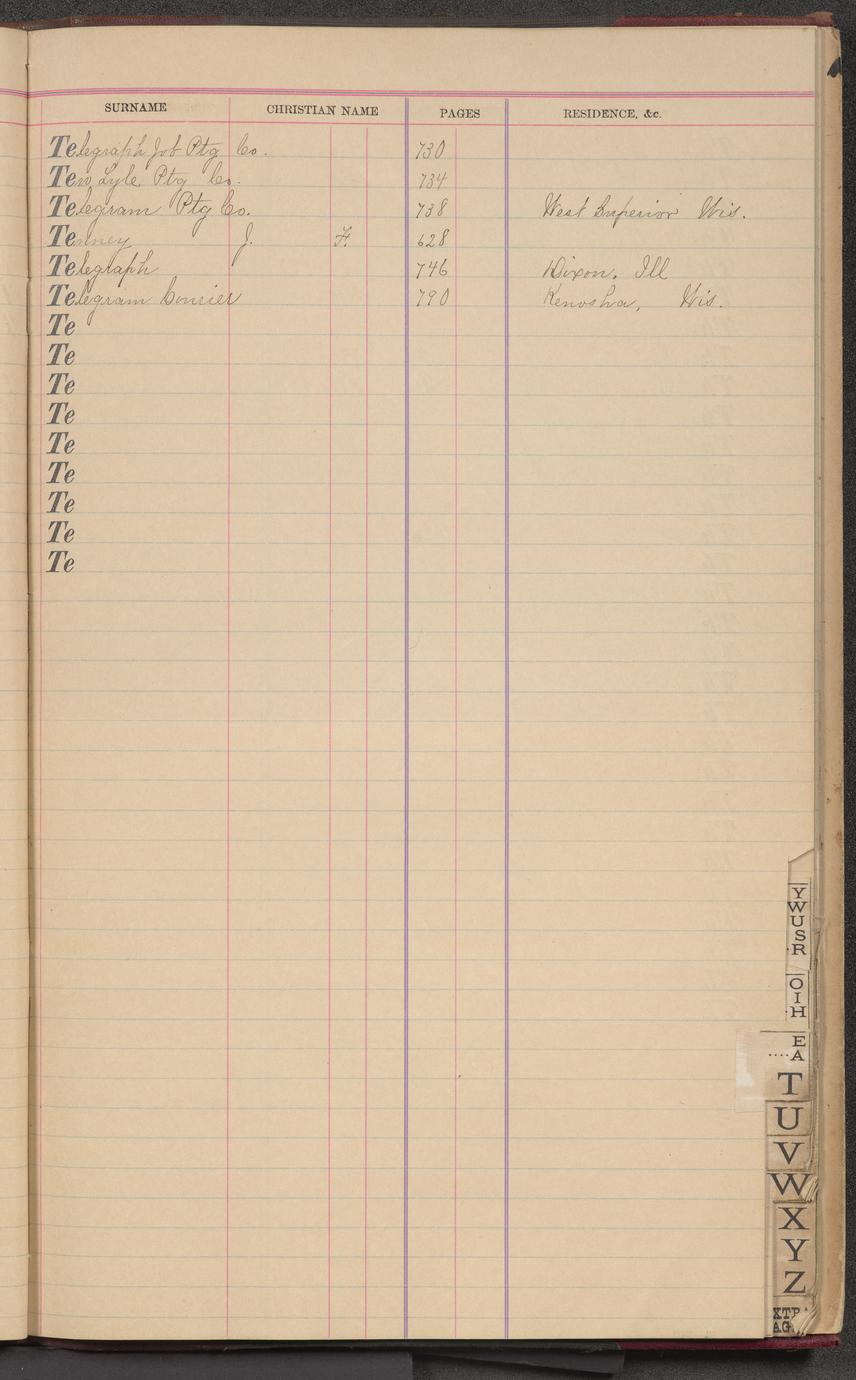 SURNAME CHRISTIAN NAME PAGES RESIDENCE, &c.
Telegraph Job Ptg Co. 730
Ten Lyle Ptg Co. 734
Telegram Ptg Co. 738 West Superior Wis.
Tenney J. F. 628
Telegraph 746 Dixon, Ill
Telegram Courier 790 Kenosha, Wis.
Te
Te
Te
Te
Te
Te
Te
Te
Te
Y
W
U
S
R
O
I
H
E
A
T
U
V
W
X
Y
Z